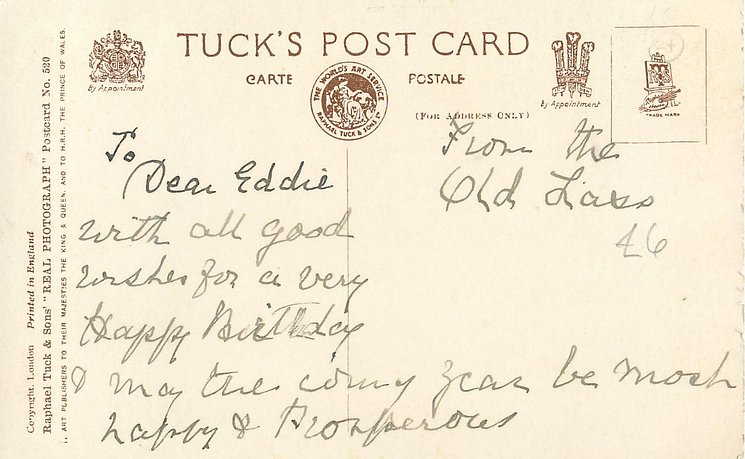 TUCK'S POST CARD
CARTE POSTALE
By Appointment
THE WORLD'S ART SERVICE
RAPHAEL TUCK & SONS LD
By Appointment
(FOR ADDRESS ONLY)
TRADE MARK
Copyright, London Printed in England
Raphael Tuck & Sons' "REAL PHOTOGRAPH" Postcard No. 520
ART PUBLISHERS TO THEIR MAJESTIES THE KING & QUEEN, AND TO H.R.H. THE PRINCE OF WALES.
To
Dear Eddie
with all good
wishes for a very
Happy Birthday
& may the coming year be most
happy & Prosperous
From the
Old Lass
46